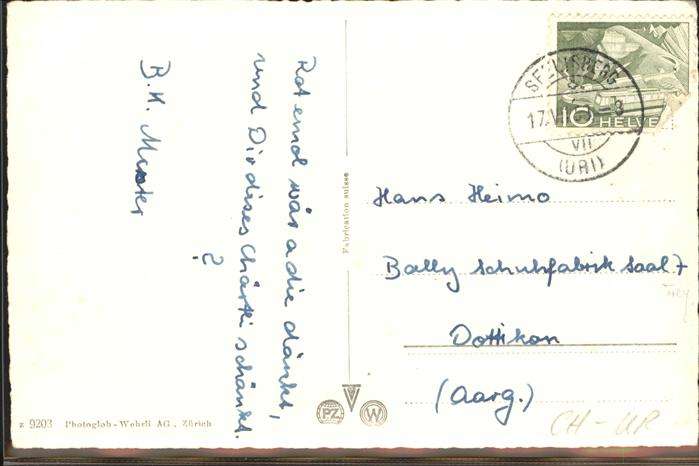 Rat emol wär a die dänkt,
und Dir dieses Chärtli schänkt.
?
B. K. Muster
Fabrication suisse
SEELISBERG
17.V
-8
VII
(URI)
10 HELVE
Hans Heimo
Bally Schuhfabrik Saal 7
Dottikon
(Aarg.)
PZ W
z 9203 Photoglob-Wehrli AG., Zürich
CH-UR